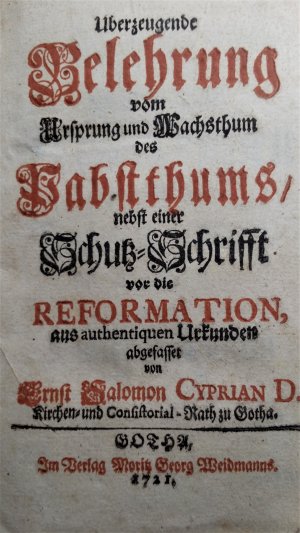 Uberzeugende
Belehrung
vom
Ursprung und Wachsthum
des
Pabstthums/
nebst einer
Schutz-Schrifft
vor die
REFORMATION,
aus authentiquen Urkunden
abgefasset
von
Ernst Salomon CYPRIAN D.
Kirchen- und Consistorial-Rath zu Gotha.
GOTHA,
Im Verlag Moritz Georg Weidmanns.
1721.